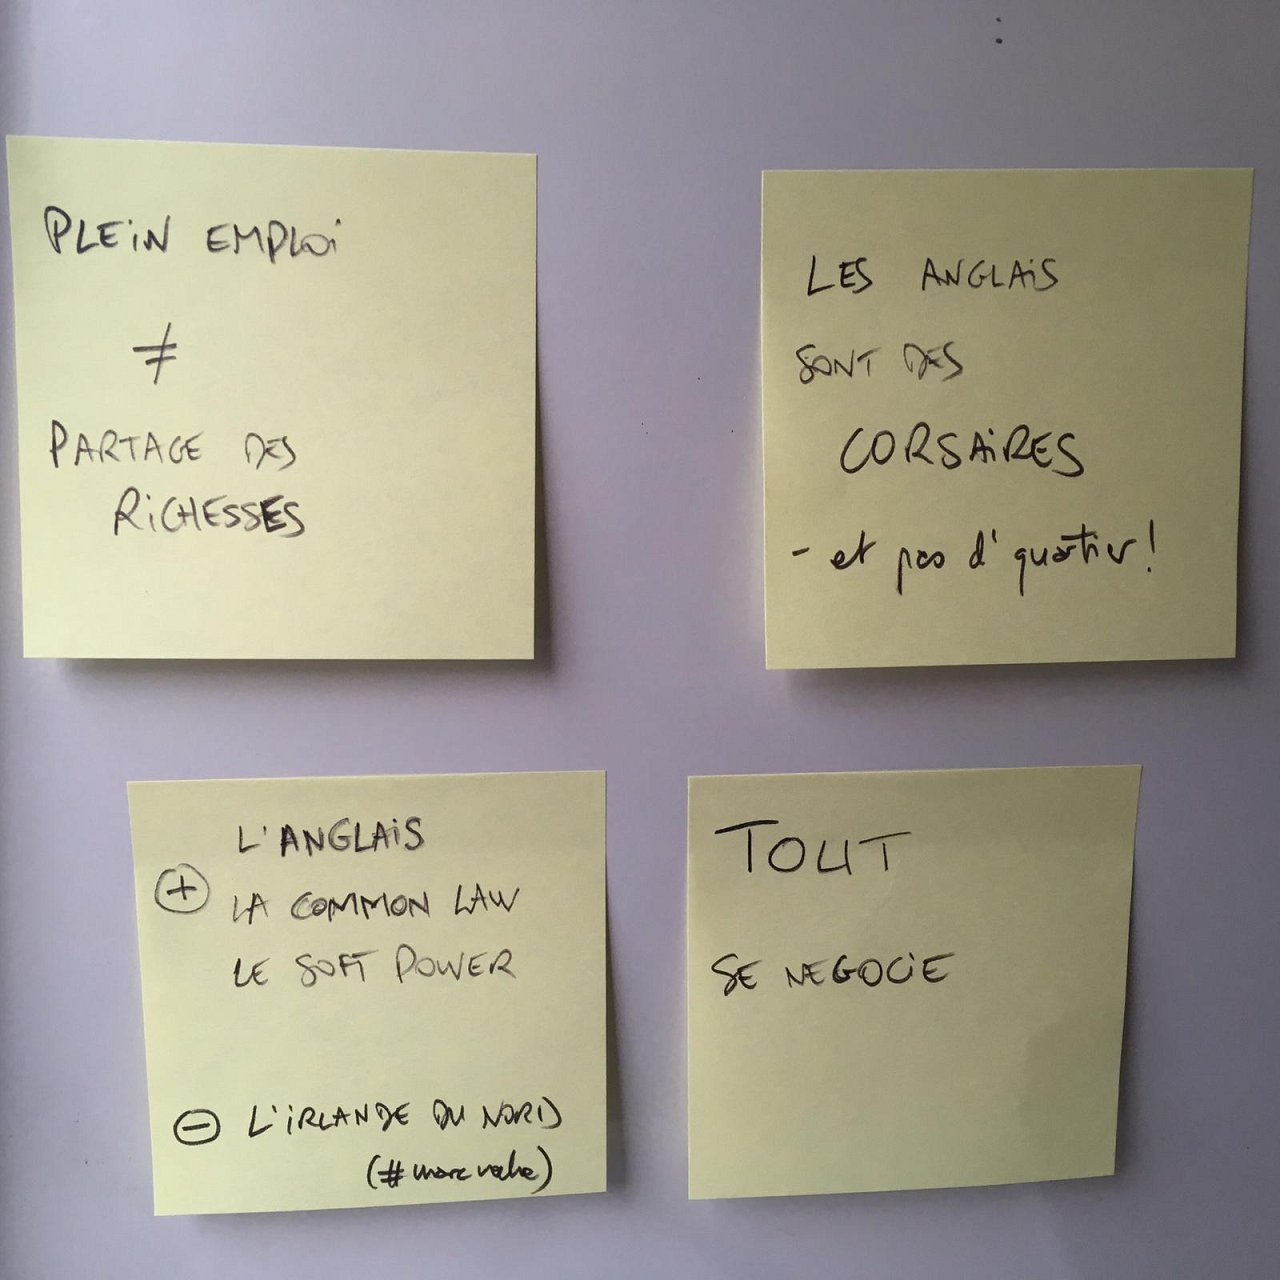 PLEIN EMPLOI
≠
PARTAGE DES
RICHESSES
LES ANGLAIS
SONT DES
CORSAIRES
- et pas d'quartier!
L'ANGLAIS
+ LA COMMON LAW
LE SOFT POWER
- L'IRLANDE DU NORD
(#marcroche)
TOUT
SE NEGOCIE